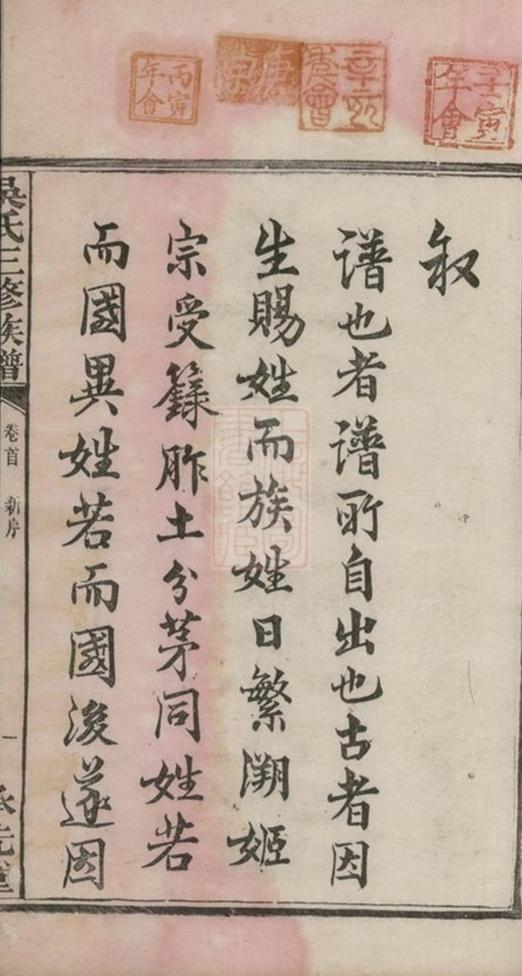 壬寅年會
辛亥年會
丙寅年會
叙
譜也者譜所自出也古者因
生賜姓而族姓日繁溯姬
宗受籙胙土分茅同姓若
而國異姓若而國後遂因
吳氏三修族譜
卷首 新序
一